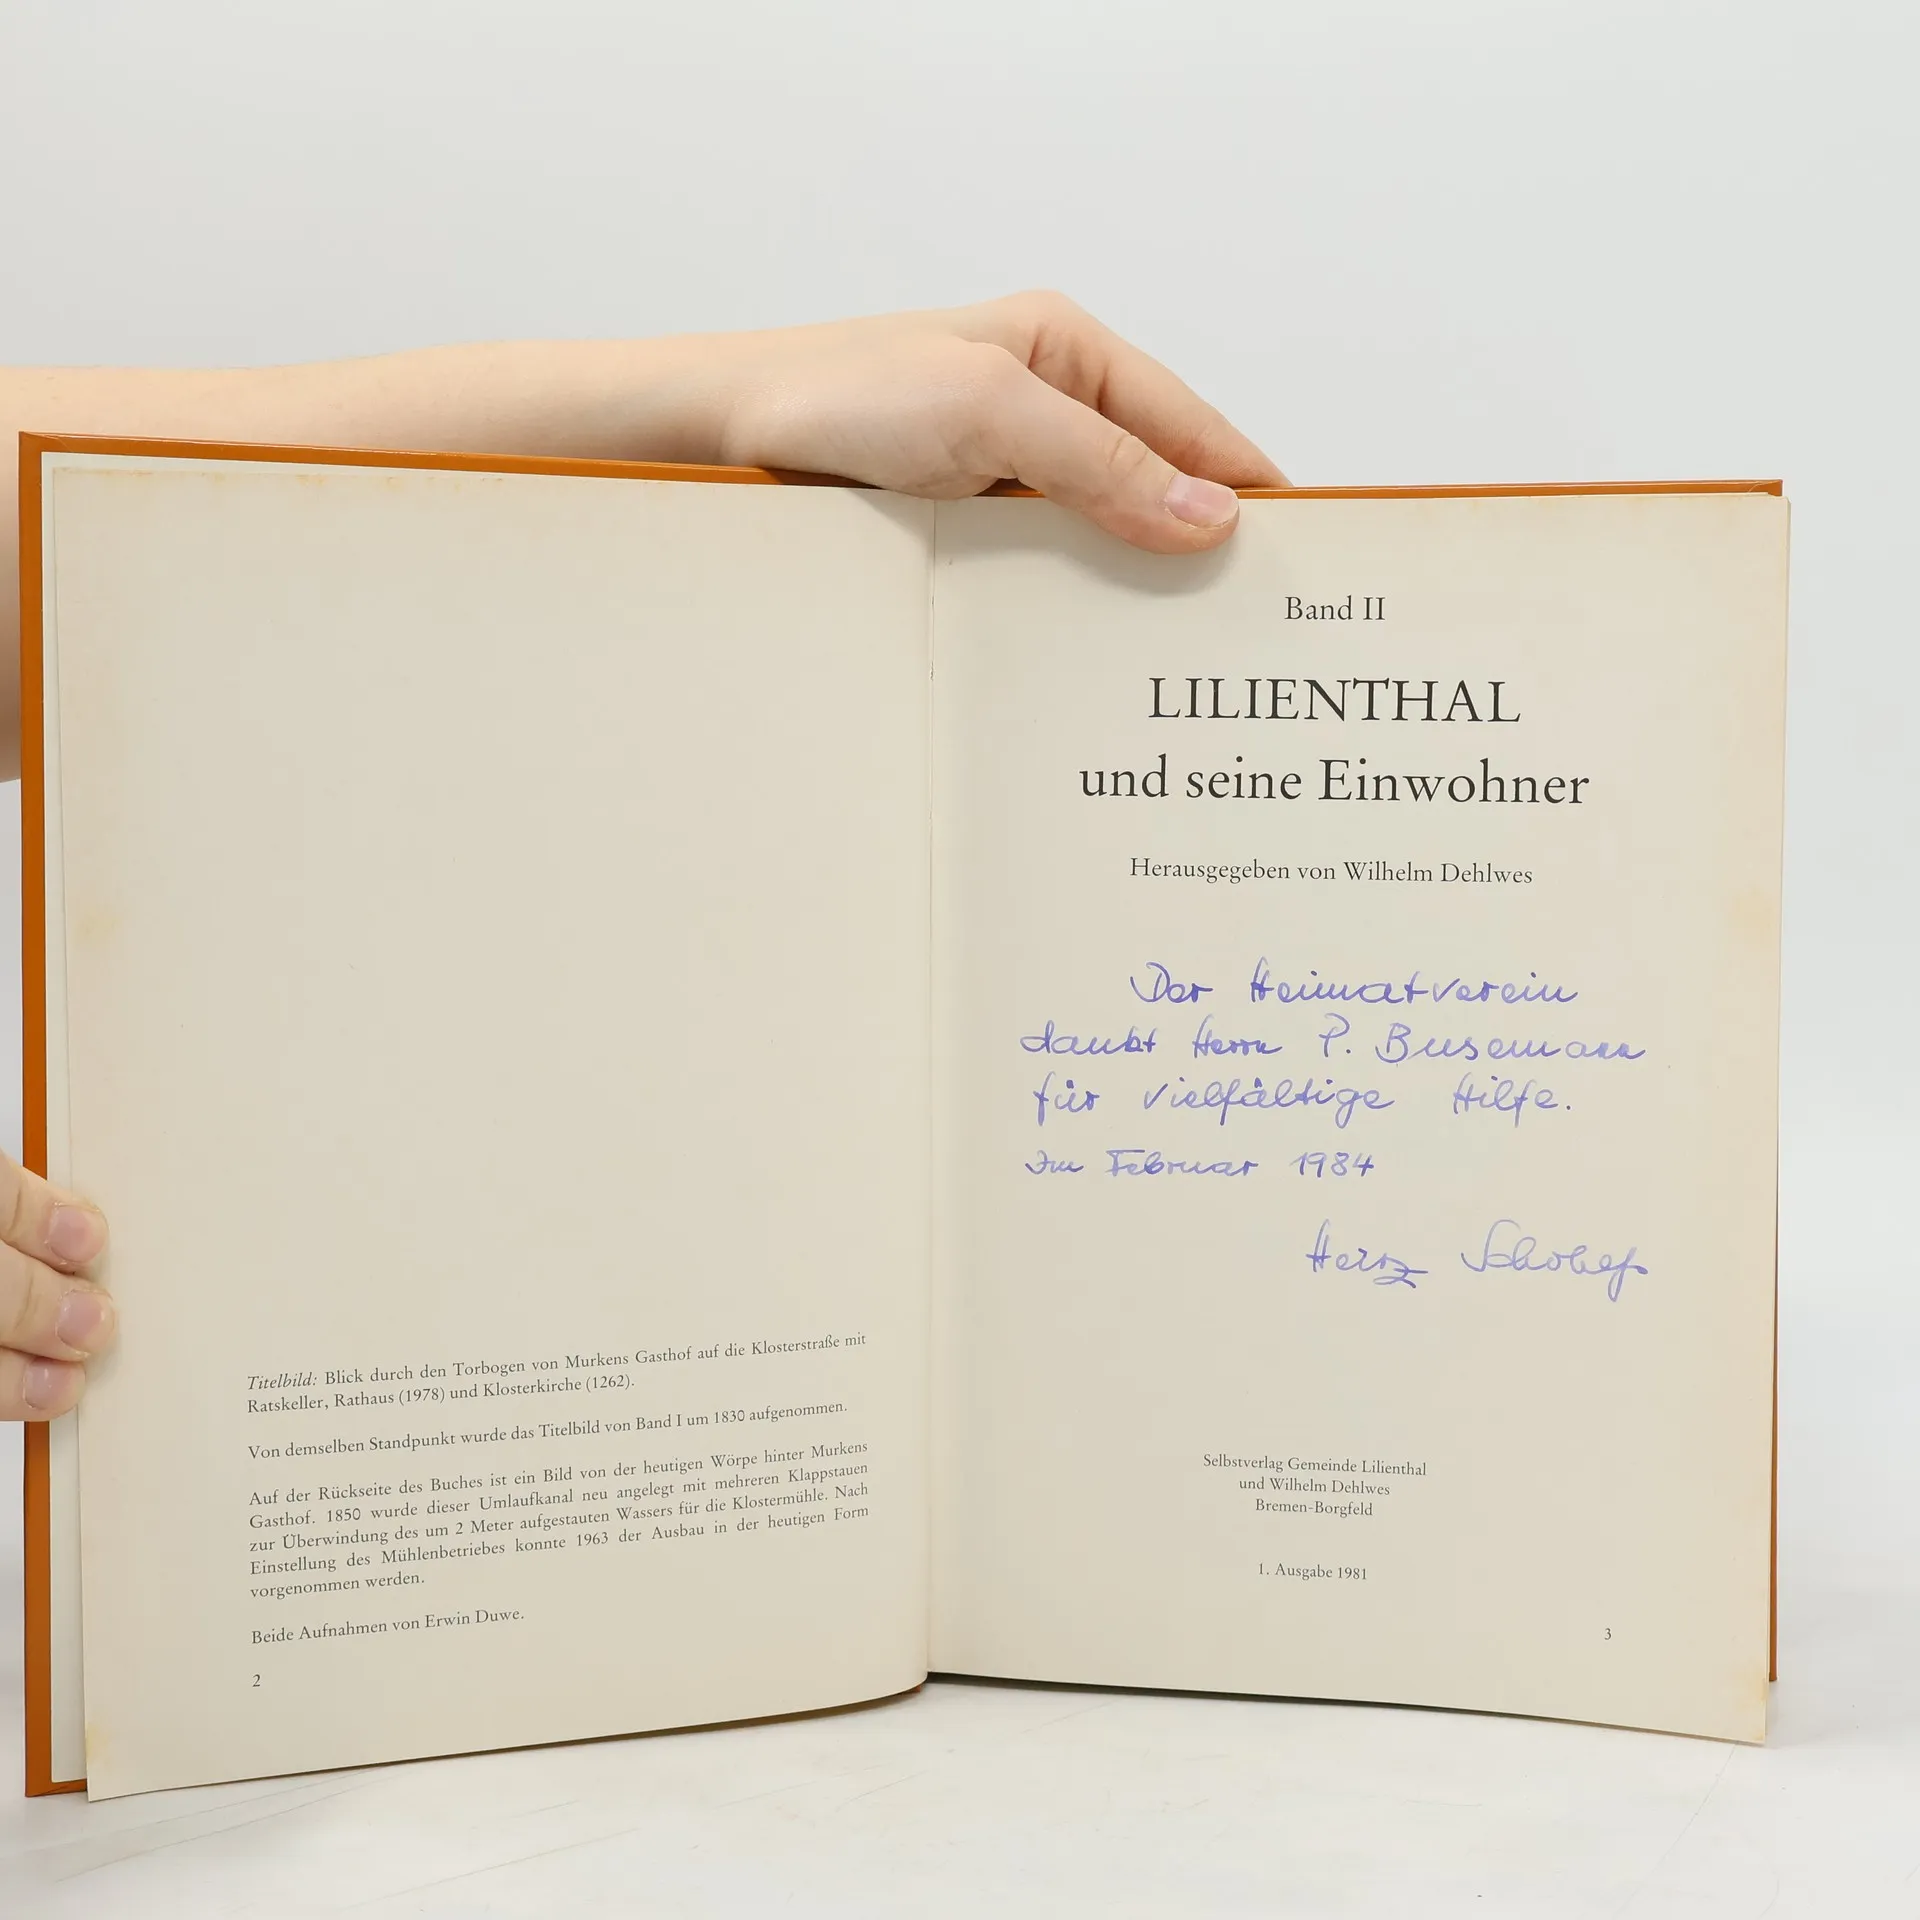 Titelbild: Blick durch den Torbogen von Murkens Gasthof auf die Klosterstraße mit
Ratskeller, Rathaus (1978) und Klosterkirche (1262).
Von demselben Standpunkt wurde das Titelbild von Band I um 1830 aufgenommen.
Auf der Rückseite des Buches ist ein Bild von der heutigen Wörpe hinter Murkens
Gasthof. 1850 wurde dieser Umlaufkanal neu angelegt mit mehreren Klappstauen
zur Überwindung des um 2 Meter aufgestauten Wassers für die Klostermühle. Nach
Einstellung des Mühlenbetriebes konnte 1963 der Ausbau in der heutigen Form
vorgenommen werden.
Beide Aufnahmen von Erwin Duwe.
2
Band II
LILIENTHAL
und seine Einwohner
Herausgegeben von Wilhelm Dehlwes
Der Heimatverein
dankt Herrn P. Busemann
für vielfältige Hilfe.
Im Februar 1984
Selbstverlag Gemeinde Lilienthal
und Wilhelm Dehlwes
Bremen-Borgfeld
1. Ausgabe 1981
3